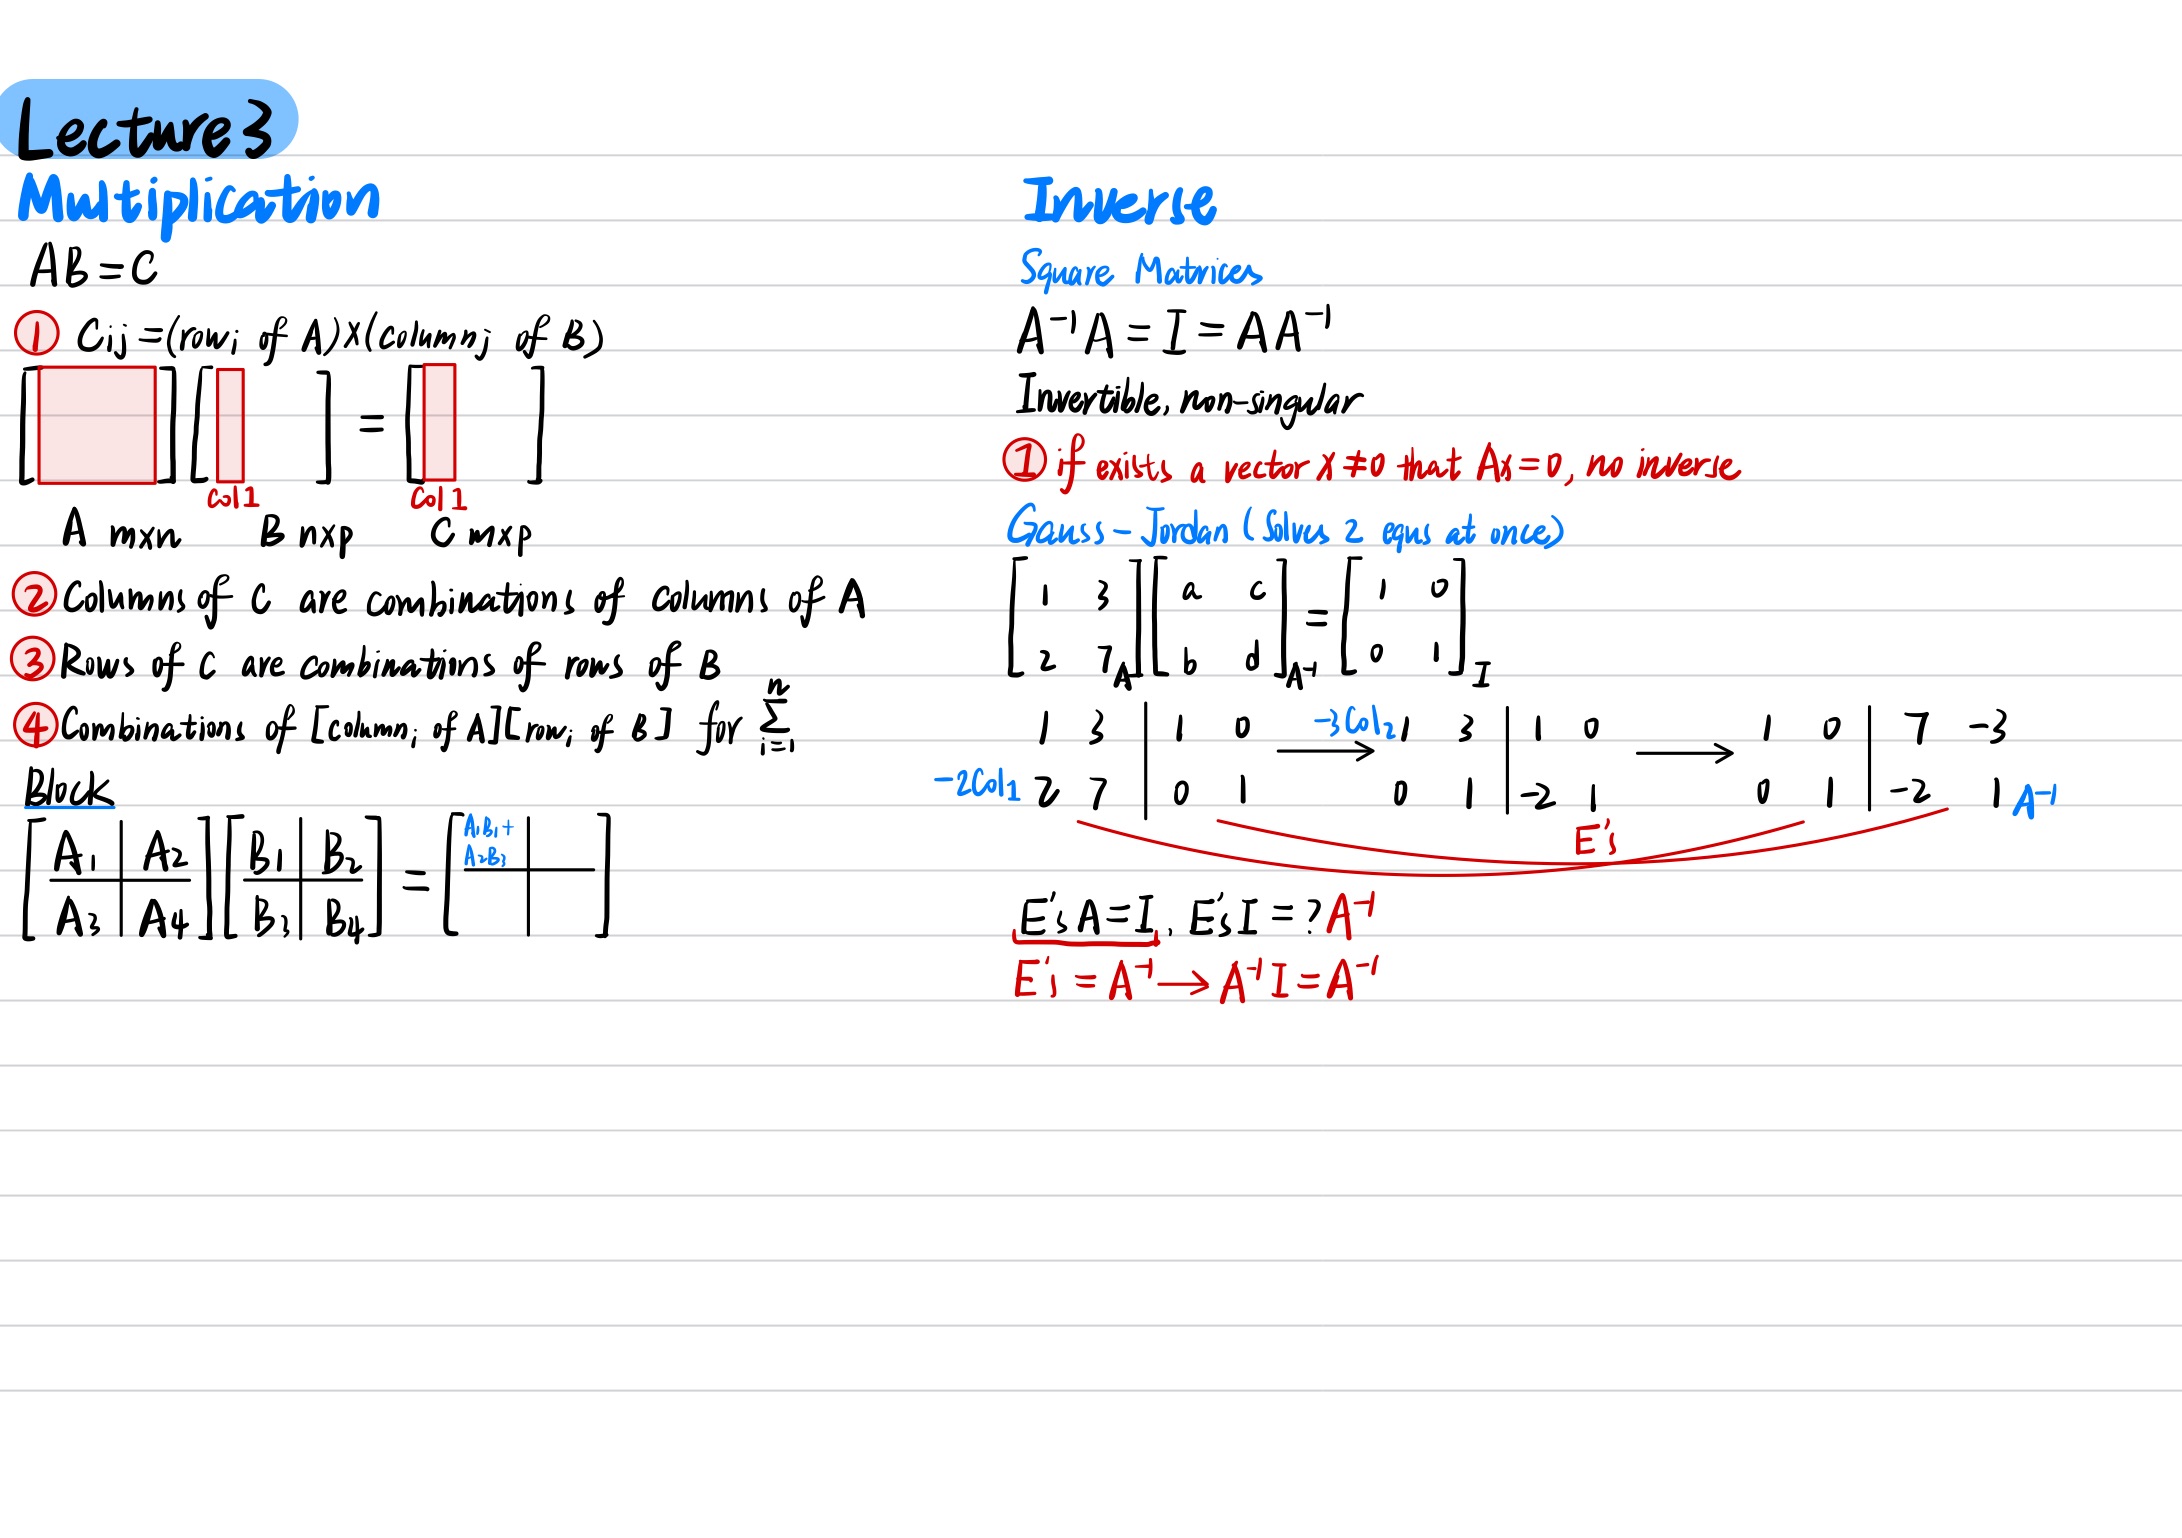 Lecture 3
Multiplication
AB = C
① Cij = (rowi of A)×(columnj of B)
[ ] [ ] = [ ]
Col1 Col1
A m×n B n×p C m×p
② Columns of C are combinations of columns of A
③ Rows of C are combinations of rows of B
④ Combinations of [columni of A][rowi of B] for n∑i=1
Block
[A1 | A2] [B1 | B2] = [A1B1 + A2B3 | ]
[A3 | A4] [B3 | B4] [ | ]
Inverse
Square Matrices
A⁻¹A = I = AA⁻¹
Invertible, non-singular
① if exists a vector x ≠ 0 that Ax = 0, no inverse
Gauss-Jordan (Solves 2 equs at once)
[1 3] [a c] = [1 0]
[2 7]A [b d]A⁻¹ [0 1]I
1 3 | 1 0 → -3Col2 1 3 | 1 0 → 1 0 | 7 -3
-2Col1 2 7 | 0 1 0 1 | -2 1 0 1 | -2 1 A⁻¹
E's
E's A = I, E's I = ? A⁻¹
E's = A⁻¹ → A⁻¹ I = A⁻¹